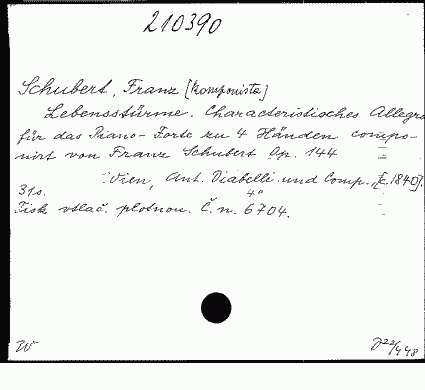 210390
Schubert, Franz [komponista]
Lebensstürme. Characteristisches Allegro
für das Piano-Forte zu 4 Händen compo-
nirt von Franz Schubert Op. 144
Wien, Ant. Diabelli und Comp., [c. 1840].
31 s. 4°
Tisk vtlač. plotnou. Č. n. 6704.
W